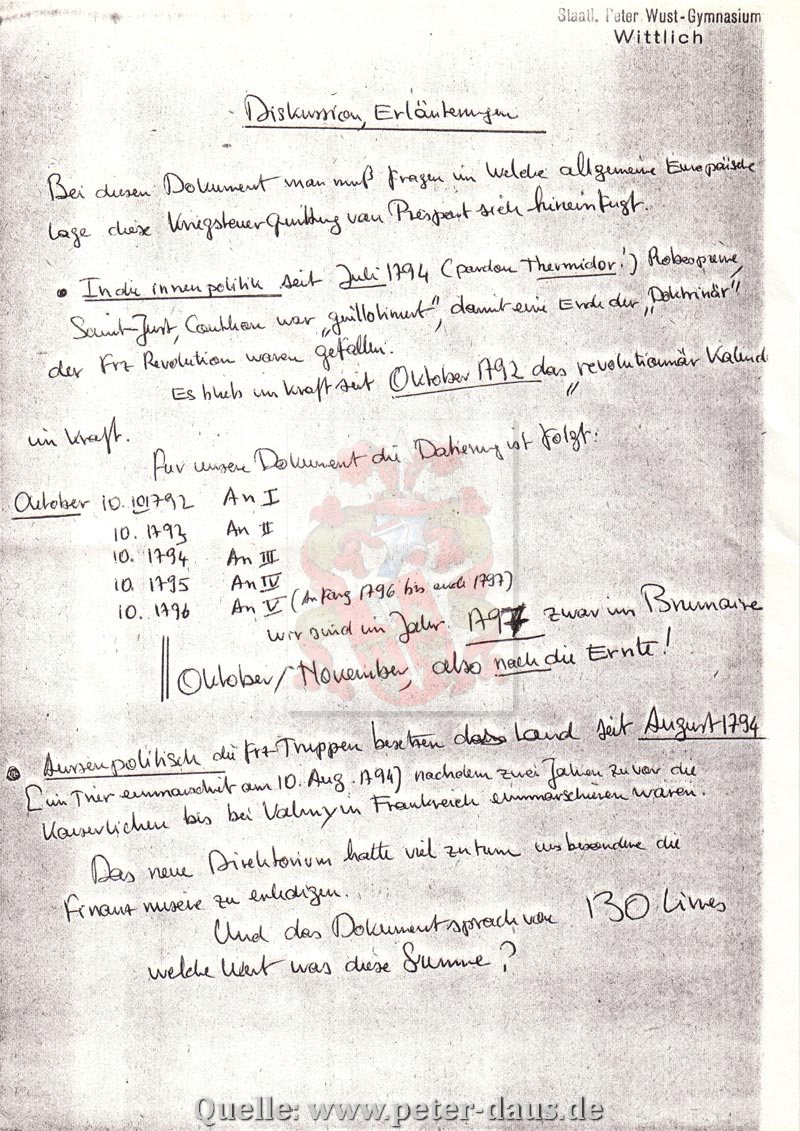 Staatl. Peter Wust-Gymnasium
Wittlich
Diskussion, Erläuterungen
Bei diesen Dokument man muß fragen in welche allgemeine Europäische
lage diese Kriegsteuer Quittung van Piesport sich hineinfugt.
• In die innenpolitik seit Juli 1794 (pardon Thermidor!) Robespierre,
Saint-Just, Couthon war „guillotiniert", damit eine Ende der „Doktrinär"
der Frz Revolution waren gefallen.
Es blieb im kraft seit Oktober 1792 das „revolutionnär Kalend
im Kraft.
Fur unsere Dokument die Datierung ist folgt:
Oktober 10.101792 An I
10. 1793 An II
10. 1794 An III
10. 1795 An IV
10. 1796 An V (Anfang 1796 bis ende 1797)
wir sind im Jahr. 1797 zwar im Brumaire
Oktober/November, also nach die Ernte!
• Aussenpolitisch die frz-Truppen besetzen das Land seit August 1794
[in Trier einmarschiert am 10. Aug. 1794] nachdem zwei Jahren zuvor die
Kaiserlichen bis bei Valmy in Frankreich einmarschieren waren.
Das neue Direktorium hatte viel zu tum insbesondere die
Finanz misere zu erledigen.
Und das Dokument sprach van 130 Livres
welche Wert was diese Summe?
Quelle: www.peter-daus.de